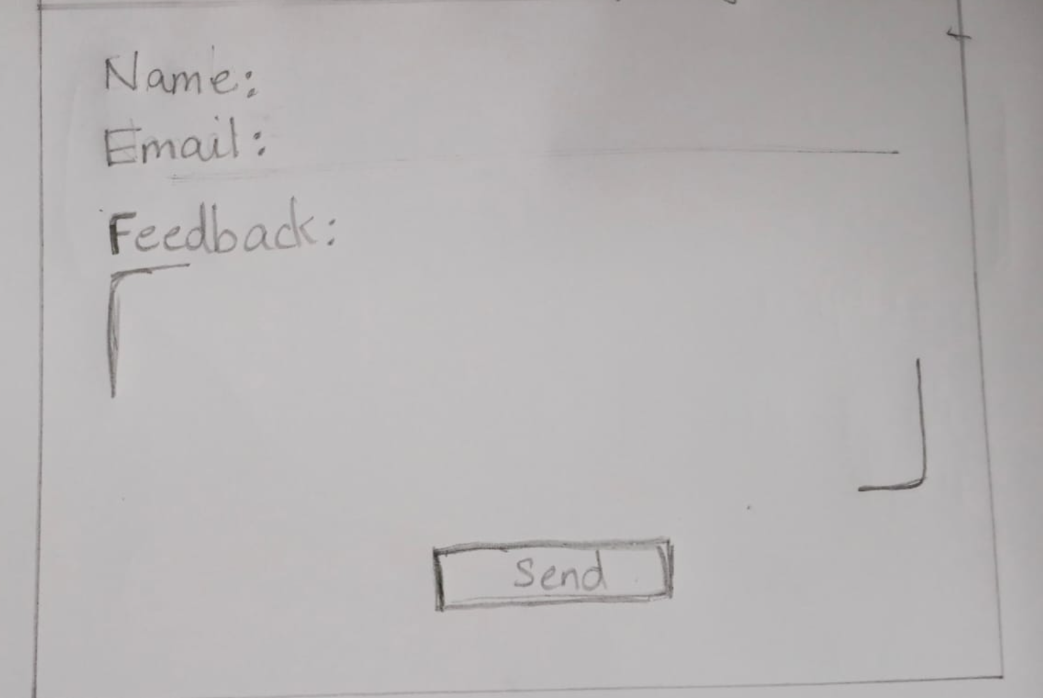 Name:
Email:
Feedback:
Send